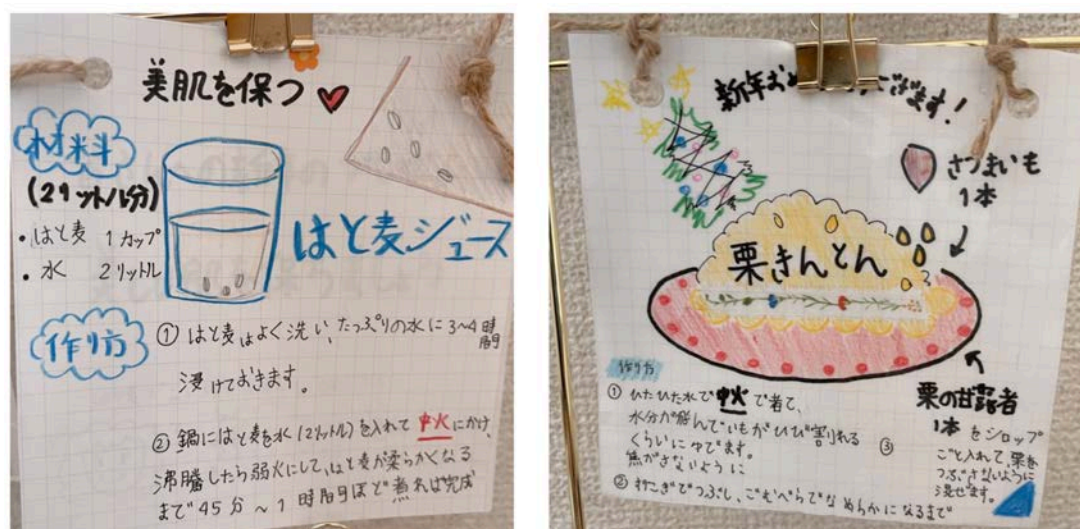 美肌を保つ
材料
(2リットル分)
・はと麦 1カップ
・水 2リットル
はと麦ジュース
作り方
① はと麦はよく洗い、たっぷりの水に3~4時間
浸けておきます。
② 鍋にはと麦を水(2リットル)を入れて中火にかけ、
沸騰したら弱火にして、はと麦が柔らかくなる
まで45分~1時間ほど煮れば完成
新年お ざます!
さつまいも
1本
栗きんとん
作り方
① ひたひた水で中火で着て、
水分が 飛んでいもがひび割れる
くらいにゆでます。
焦がさないように
② すこぎでつぶし、ごむべらでなめらかになるまで
栗の甘露煮
1本をシロップ
③ ごと入れて、栗を
つぶさないように
混ぜます。